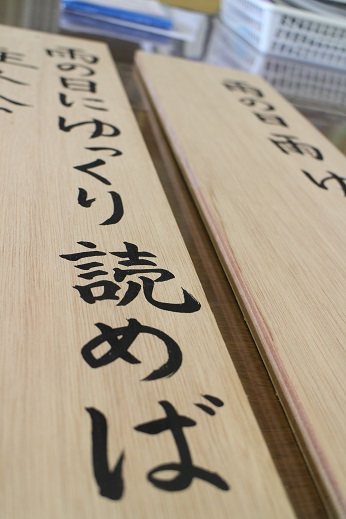 雨の日 雨 ゆ
雨の日にゆっくり読めば